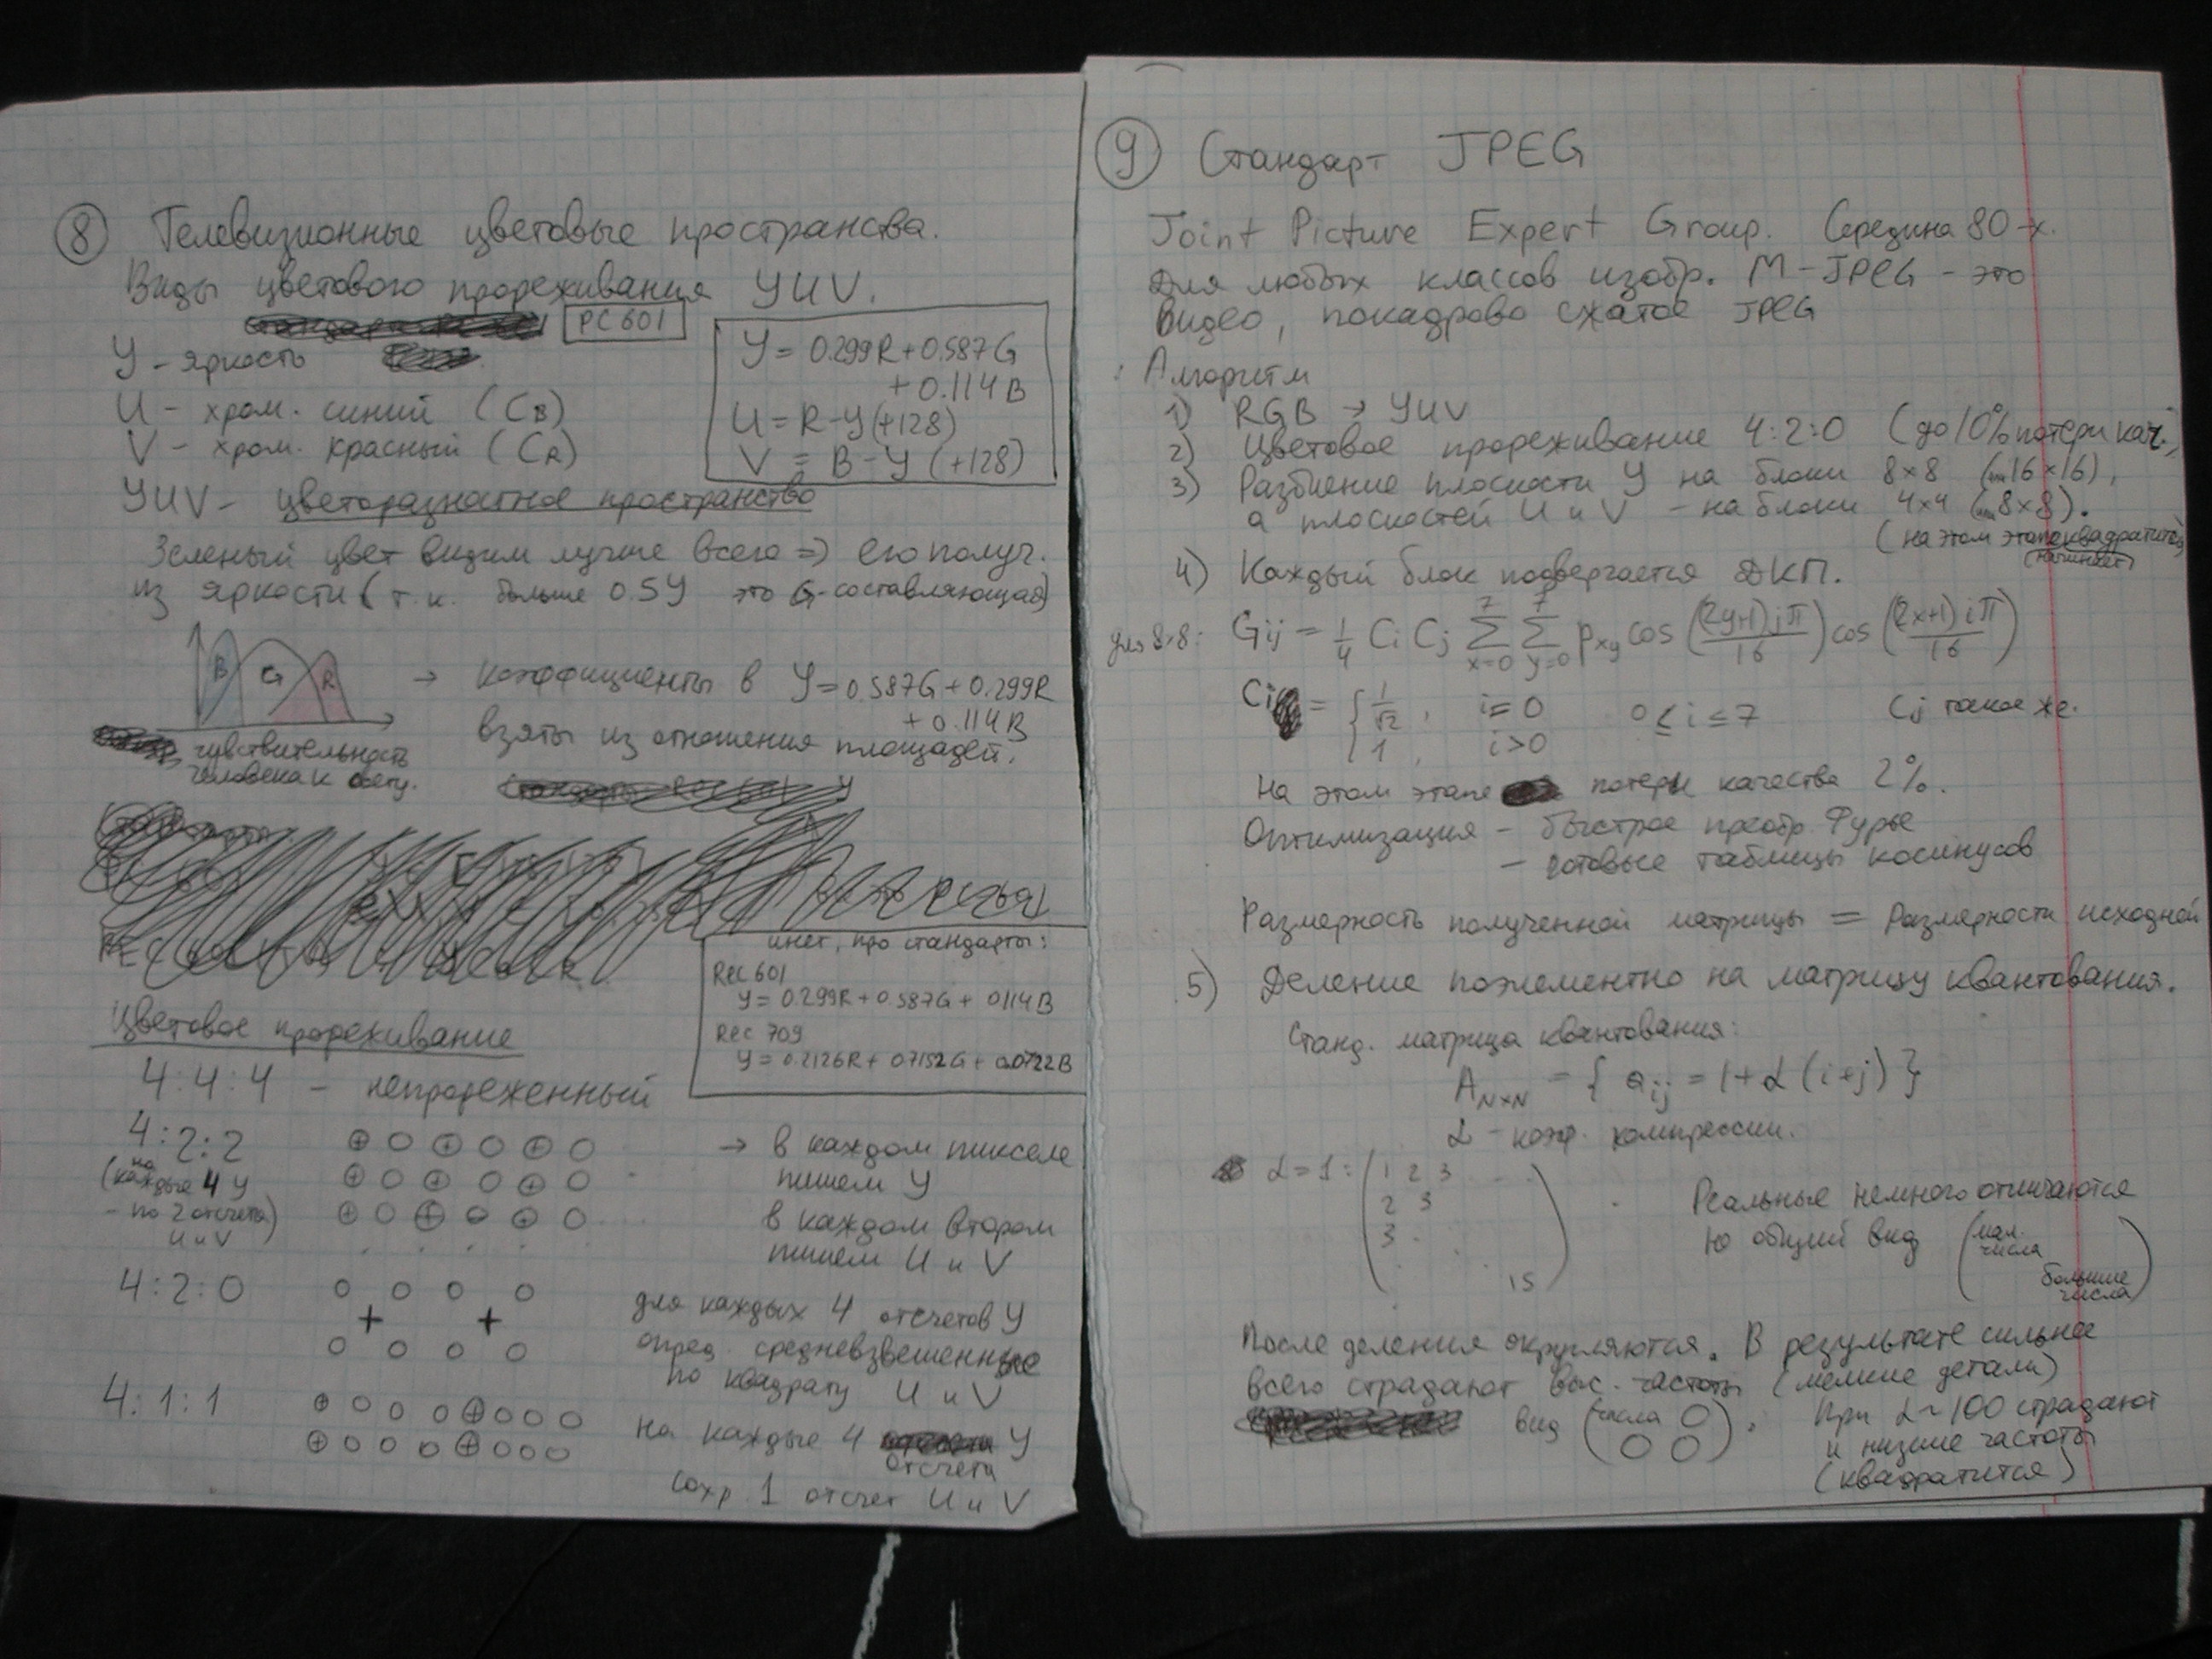 ⑧ Телевизионные цветовые пространства.
Виды цветового прореживания YUV.
РС 601
Y - яркость
U - хром. синий (CB)
V - хром. красный (CR)
Y = 0.299R + 0.587G
+ 0.114B
U = R-Y (+128)
V = B-Y (+128)
YUV - цветоразностное пространство
Зеленый цвет видим лучше всего => его получ.
из яркости (т.к. больше 0.5Y это G-составляющая)
B G R
чувствительность
человека к свету.
→ коэффициенты в Y = 0.587G + 0.299R
+ 0.114B
взяты из отношения площадей.
инет, про стандарты:
Rec 601
Y = 0.299R + 0.587G + 0.114B
Rec 709
Y = 0.2126R + 0.7152G + 0.0722B
Цветовое прореживание
4:4:4 - непрореженный
4:2:2
(на каждые 4 Y
- по 2 отсчета
U и V)
→ в каждом пикселе
пишем Y
в каждом втором
пишем U и V
4:2:0
для каждых 4 отсчетов Y
опред. средневзвешенные
по квадрату U и V
4:1:1
на каждые 4 отсчета Y
сохр. 1 отсчет U и V
⑨ Стандарт JPEG
Joint Picture Expert Group. Середина 80-х.
Для любых классов изобр. M-JPEG - это
видео, покадрово сжатое JPEG
Алгоритм
1) RGB → YUV
2) Цветовое прореживание 4:2:0 (до 10% потери кач.)
3) Разбиение плоскости Y на блоки 8×8 (или 16×16),
а плоскостей U и V - на блоки 4×4 (или 8×8).
(на этом этапе квадратится
начинает)
4) Каждый блок подвергается ДКП.
для 8×8: Gij = 1/4 Ci Cj Σ(x=0..7) Σ(y=0..7) pxy cos((2y+1)jπ/16) cos((2x+1)iπ/16)
Ci = { 1/√2, i=0 0 ≤ i ≤ 7 Cj такое же.
1, i>0
На этом этапе потери качества 2%.
Оптимизация - быстрое преобр. Фурье
- готовые таблицы косинусов
Размерность полученной матрицы = Размерности исходной
5) Деление поэлементно на матрицу квантования.
Станд. матрица квантования:
A N×N = { aij = 1+α(i+j) }
α - коэф. компрессии.
α=1: (1 2 3 ...
2 3
3 .
15)
Реальные немного отличаются
но общий вид (мал.
числа
большие
числа)
После деления округляются. В результате сильнее
всего страдают выс. частоты (мелкие детали)
вид (числа 0
0 0).
При α~100 страдают
и низшие частоты
(квадратится)